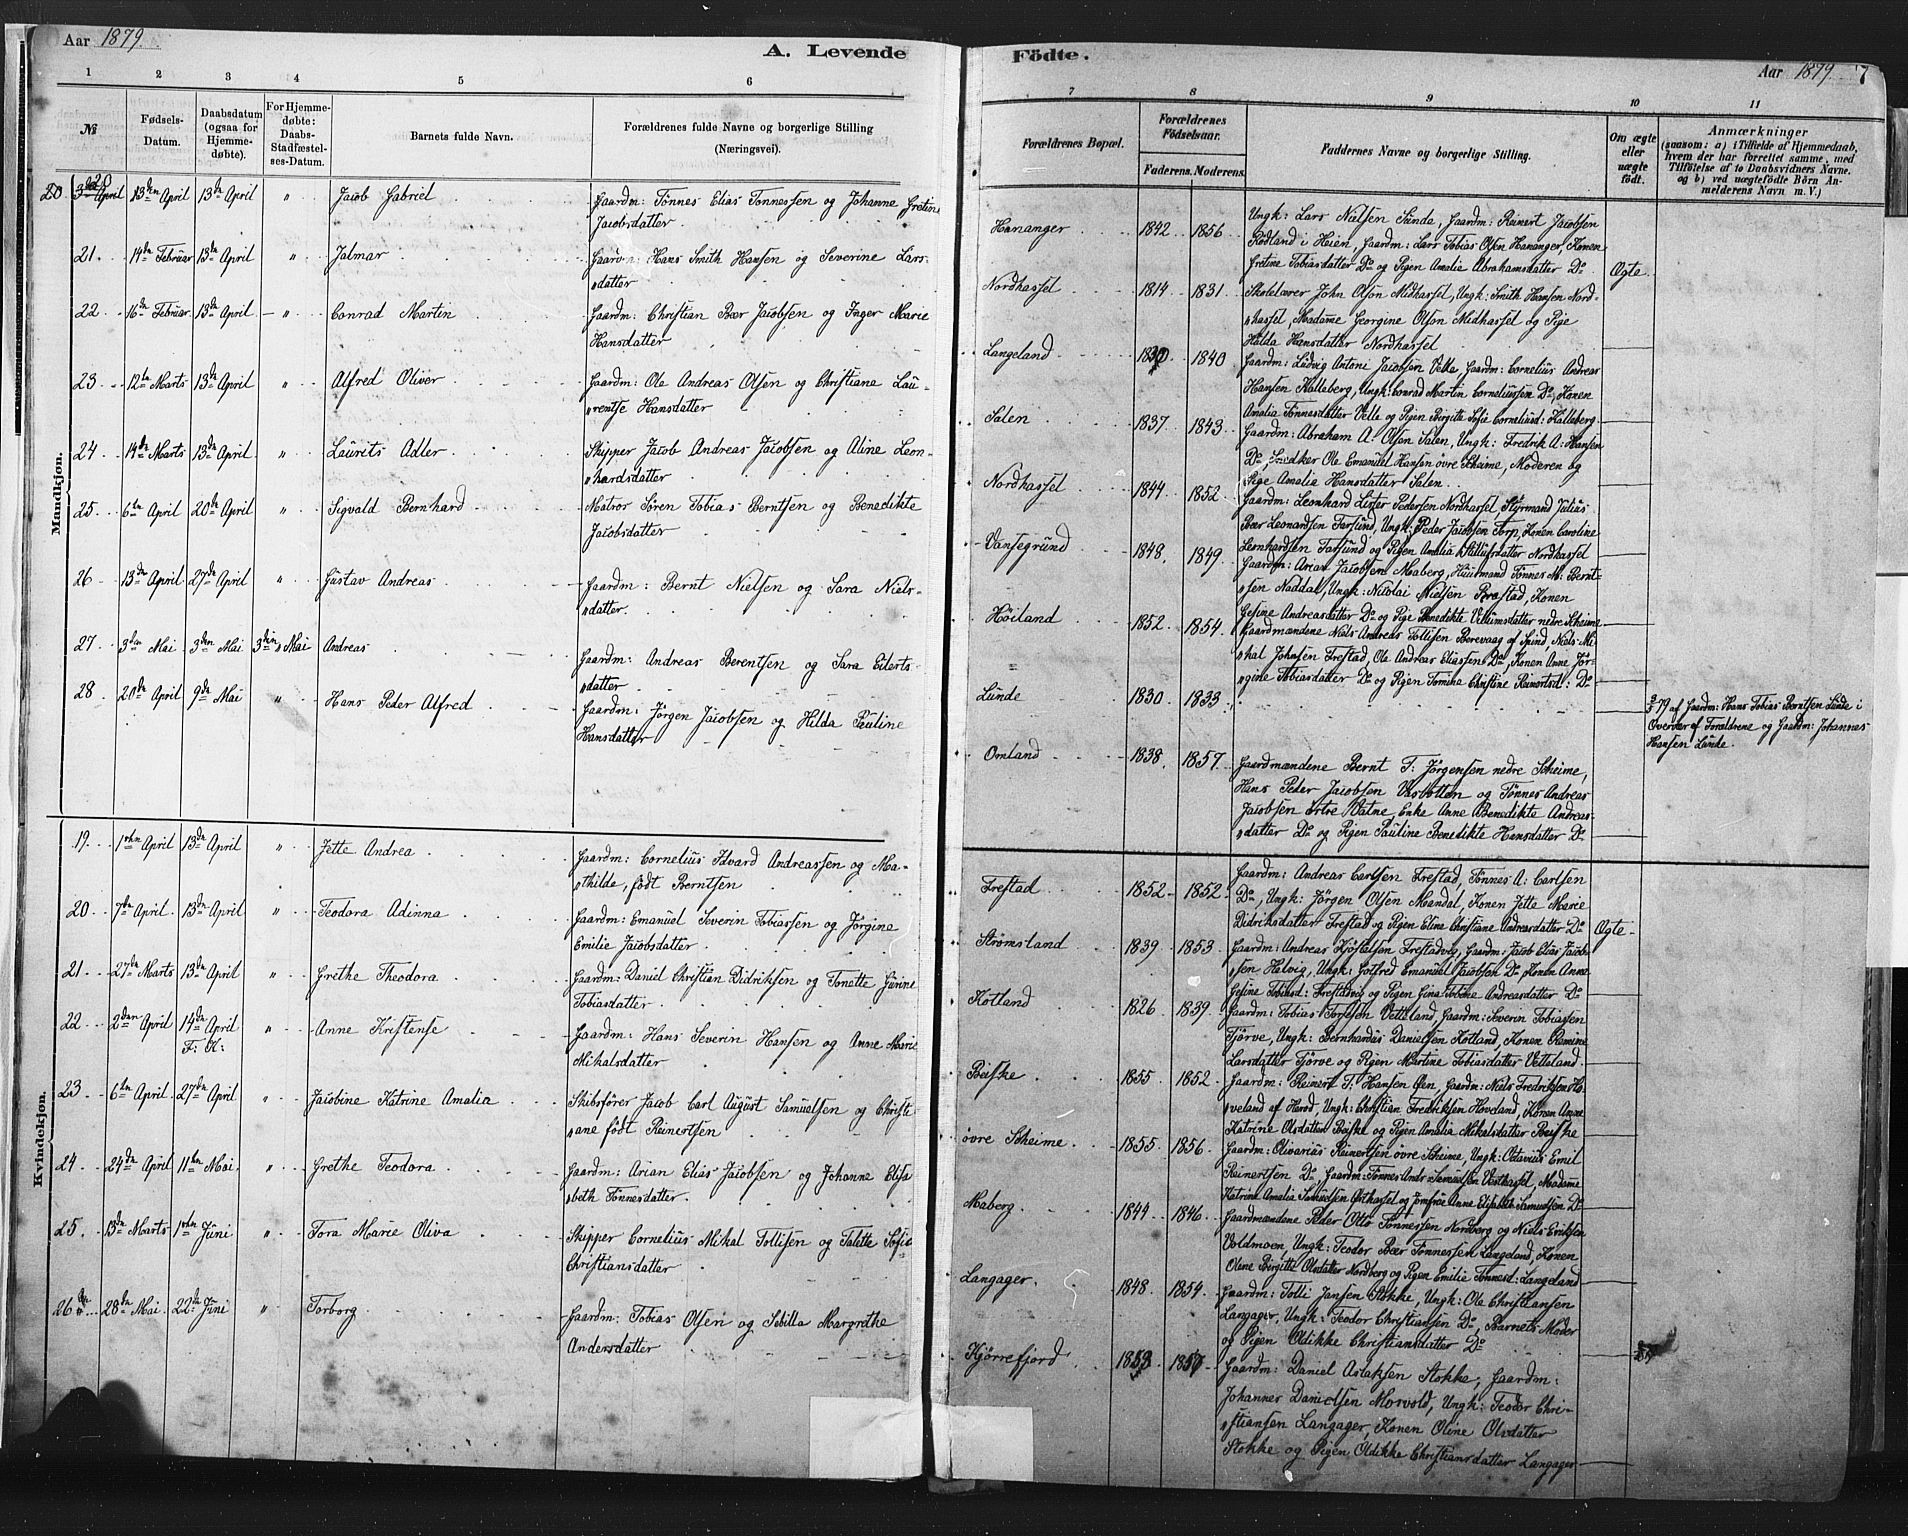 Aar 1879.
A. Levende
1 2 3 4 5 6
№
Fødsels-Datum.
Daabsdatum (ogsaa for Hjemmedøbte).
For Hjemmedøbte: Daabs-Stadfæstelses-Datum.
Barnets fulde Navn.
Forældrenes fulde Navne og borgerlige Stilling
(Næringsvei).
Mandkjøn.
20 13de April 13de April " Jacob Gabriel Gaardm: Tönnes Elias Tönnessen og Johanne Gretine
Jacobsdatter
21. 14de Februar 13de April " Jalmar Gaardm: Hans Smith Hansen og Severine Lars-
"datter
22 16de Februar 13de April " Conrad Martin Gaardm: Christian Bær Jacobsen og Inger Marie
Hansdatter
23 12te Marts 13de April " Alfred Oliver Gaardm: Ole Andreas Olsen og Christiane Lau-
"rentse Hansdatter
24 14de Marts 13de April " Laurits Adler Skipper Jacob Andreas Jacobsen og Aline Leon-
"hardsdatter
25 6te April 20de April " Sigvald Bernhard Matros Søren Tobias Berntsen og Benedikte
Jacobsdatter
26 13de April 27de April " Gustav Andreas Gaardm: Bernt Nielsen og Sara Niels-
"datter.
27 3den Mai 3den Mai 3die Mai Andreas Gaardm: Andreas Berentsen og Sara Eilerts-
"datter
28 20de April 9de Mai " Hans Peder Alfred Gaardm: Jörgen Jacobsen og Hilda Pauline
Hansdatter
Kvindekjøn.
19. 1ste April 13de April " Jette Andrea Gaardm: Cornelius Edvard Andreassen og Ma-
"thilde, født Berntsen
20 7de April 13de April " Teodora Adinna Gaardm: Emanuel Severin Tobiassen og Jörgine
Emilie Jacobsdatter
21 27de Marts 13de April " Grethe Theodora Gaardm: Daniel Christian Didriksen og Tonette Gurine
Tobiasdatter
22 2den April 14de April " Anne Kristense Gaardm: Hans Severin Hansen og Anne Marie
F: K: Mikalsdatter
23 6te April 27de April " Jacobine Katrine Amalia Skibsfører Jacob Carl August Samuelsen og Christi
"ane født Reinertsen
24 24de April 11te Mai " Grethe Teodora Gaardm: Arian Elias Jacobsen og Johanne Elisa
"beth Tönnesdatter.
25 13de Marts 1ste Juni " Tora Marie Oliva Skipper Cornelius Mikal Tollisen og Talette Sofie
Christiansdatter
26 28de Mai 22de Juni " Torborg Gaardm: Tobias Olsen og Sebilla Margrethe
Andersdatter
Födte.
Aar 1879. 7
7 8 9 10 11
Forældrenes Bopæl.
Forældrenes Fødselsaar.
Faderens. Moderens.
Faddernes Navne og borgerlige Stilling.
Om ægte eller uægte født.
Anmærkninger
(saasom: a) i Tilfælde af Hjemmedaab,
hvem der har forrettet samme, med
Tilføielse af to Daabsvidners Navne.
og b) ved uægtefødte Börn An-
melderens Navn m. V.)
Hananger 1842 1856 Ungk: Lars Nielsen Sunde, Gaardm: Reinert Jacobsen
Rødland i Heien, Gaardm: Lars Tobias Olsen Hananger, Konen
Gretine Tobiasdatter Do og Pigen Amalie Abrahamsdatter Do Ægte.
Nordhassel 1814 1831 Skolelærer John Olson Midhassel, Ungk: Smith Hansen Nord-
"hassel, Madame Georgine Olson Midhassel og Pige
Hulda Hansdatter Nordhassel
Langeland 1840 Gaardm: Ludvig Antoni Jacobsen Velle, Gaardm: Cornelius Andreas
Hansen Kalleberg, Ungk: Conrad Martin Corneliussen Do, Konen
Amalia Tönnesdatter Velle og Pigen Birgithe Sofie Corneliusd: Kalleberg
Salen 1837 1843 Gaardm: Abraham A. Olsen Salen, Ungk: Fredrik A: Hansen
Do, Snedker Ole Emanuel Hansen övre Skeime, Moderen og
Pige Amalie Hansdatter Salen
Nordhassel 1844 1852 Gaardm: Leonhard Lister Pedersen Nordhassel, Styrmand Julius
Bær Leonardsen Farsund, Ungk: Peder Jacobsen Torp, Konen Caroline
Leonhardsen Farsund og Pigen Amalia datter Nordhassel
Vansegrund 1848. 1849 Gaardm: Arian Jacobsen Maberg, Huusmand Tönnes M: Bernt-
"sen Naddal, Ungk: Nicolai Nielsen Præstad, Konen
Gesine Andreasdatter Do og Pige Benedikte Villumsdatter nedre Skeime
Höiland 1852 1854 Gaardmændene Niels Andreas Tollisen Berevaag af Spind, Niels Mi-
"kal Johnsen Frestad, Ole Andreas Eliassen Do, Konen Anne Jör-
"gine Tobiasdatter Do og Pigen Tomine Christine Reinertsd: Do
Lunde 1830 1833 3/5 79 af Gaardm: Hans Tobias Berntsen Lunde i
Overvær af Forældrene og Gaardm: Johannes
Hansen Lunde.
Omland 1838. 1857 Gaardmændene Bernt T: Jörgensen nedre Skeime,
Hans Peder Jacobsen Vasbotten og Tönnes Andreas
Jacobsen Östre Vatne, Enke Anne Benedikte Andreas-
"datter Do og Pigen Pauline Benedikte Hansdatter Do
Frestad 1852 1852 Gaardm: Andreas Carlsen Frestad, Tönnes A: Carlsen
Do, Ungk: Jörgen Olsen Mandal, Konen Jette Marie
Didriksdatter Frestad og Pigen Elina Christiane Andreasdatter Do Ægte
Strömsland 1839 1853 Gaardm: Andreas Kjöstelsen Frestadvig, Gaardm: Jacob Elias Jacob-
"sen Helvig, Ungk: Gotfred Emanuel Jacobsen Do, Konen Anne
Gesine Tobiasd: Frestadvig og Pigen Gina Tobine Andreasdatter Do
Kotland 1826 1839 Gaardm: Tobias Torjesen Velleland, Gaardm: Severin Tobiassen
Tjörve, Ungk: Bernhardus Danielsen Kotland, Konen Ramine
Larsdatter Tjörve og Pigen Martine Tobiasdatter Velleland
Beiske 1855 1852. Gaardm: Reinert T: Hansen Øen, Gaardm: Niels Fredriksen Ho-
"veland af Herod, Ungk: Christian Fredriksen Hoveland, Konen Anne
Katrine Olsdatter Beiske og Pigen Amalia Mikalsdatter Beiske
övre Skeime 1855 1856 Gaardm: Olivarius Reinertsen övre Skeime, Ungk: Octavius Emil
Reinertsen Do, Gaardm: Tönnes Andr: Samuelsen Vesthassel, Madame
Katrine Amalia Samuelsen Østhassel og Jomfrue Anne Elisabeth Samuelsen Do
Maberg 1844 1846 Gaardmændene Peder Otto Tönnessen Nordberg og Niels Eriksen
Voldmoen, Ungk: Teodor Bær Tönnessen Langeland, Konen
Oline Birgitte Olsdatter Nordberg og Pigen Emilie Tönnesd: Langeland
Langager 1848 1854 Gaardm: Tolli Jansen Stokke, Ungk: Ole Christiansen
Langager, Ungk: Teodor Christiansen Do, Barnets Moder
og Pigen Oldikke Christiansdatter Do
Kjörrefjord 1853 1857 Gaardm: Daniel Aslaksen Stokke, Gaardm:
Johannes Danielsen Morvold, Ungk: Teodor Chri-
"stiansen Langager, Konen Oline Olsdatter
Stokke og Pigen Oldikke Christiansdatter Langager